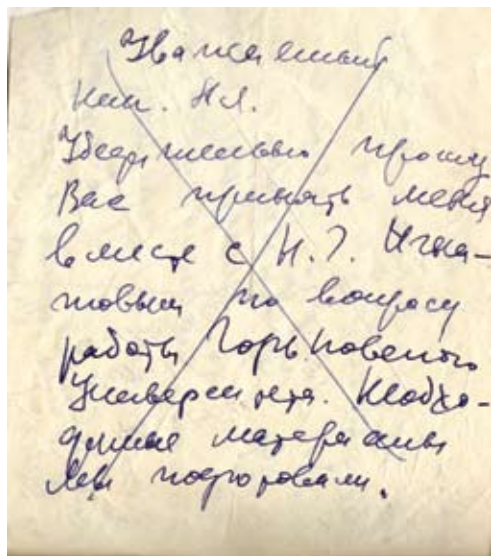 Уважаемый
Ник. Ял.
Убедительно прошу
Вас принять меня
вместе с Н.Г. Игна-
товым по вопросу
работы Горьковского
Университета. Необхо-
димые материалы
мы подготовили.